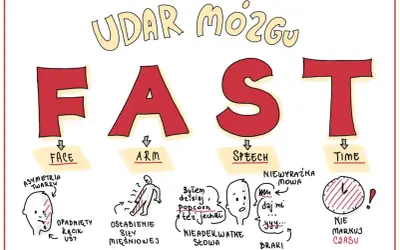 UDAR MÓZGU
FAST
FACE
ARM
SPEECH
TIME
ASYMETRIA
TWARZY
OPADNIĘTY
KĄCIK
UST
OSŁABIENIE
SIŁY
MIĘŚNIOWEJ
Byłem
dzisiej
popcorn
też jechał
NIEADEKWATNE
SŁOWA
NIEWYRAŹNA
MOWA
daj mi
yyy...
BRAKI
NIE
MARNUJ
CZASU
!